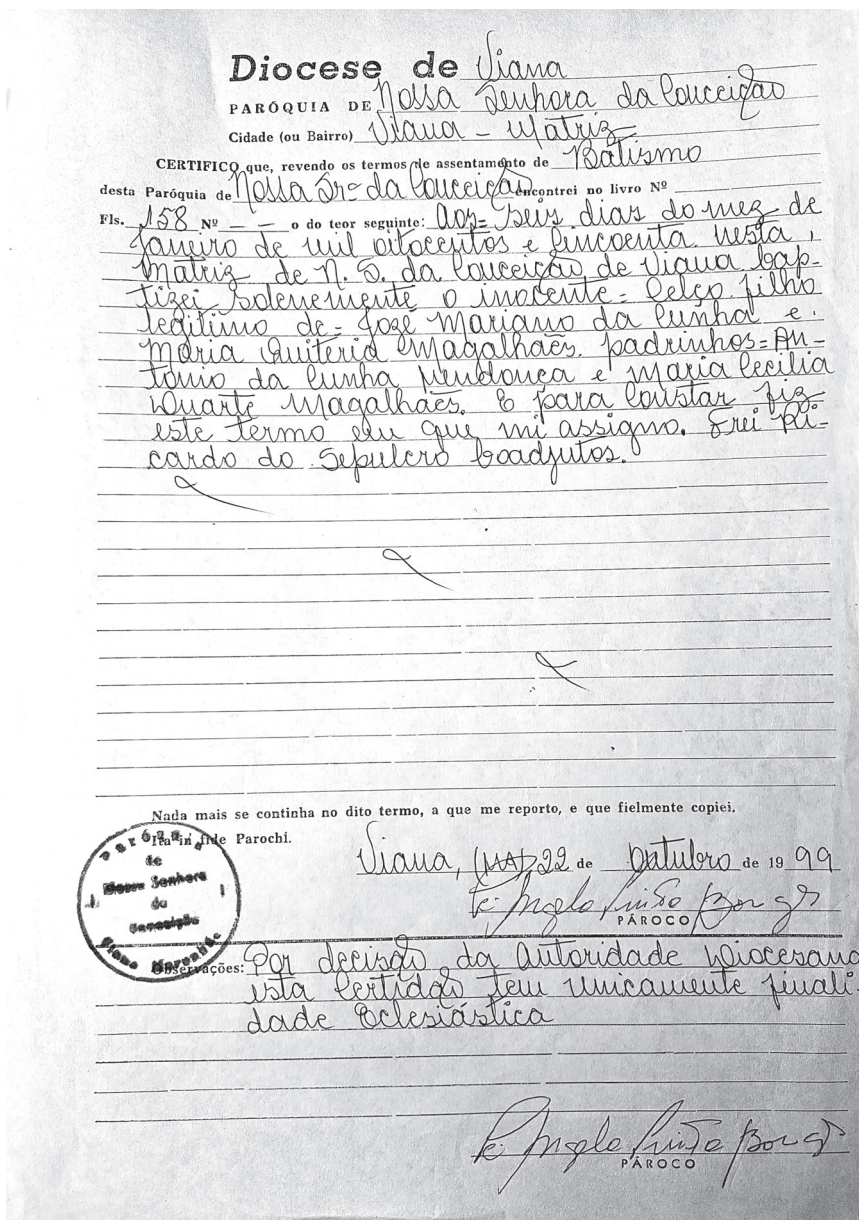 Diocese de Viana
PARÓQUIA DE Nossa Senhora da Conceição
Cidade (ou Bairro) Viana - Matriz
CERTIFICO que, revendo os termos de assentamento de Batismo
desta Paróquia de Nossa Srª da Conceição encontrei no livro Nº
Fls. 158 Nº - - o do teor seguinte: Aos= seis dias do mez de
Janeiro de mil oitocentos e Cincoenta nesta,
Matriz de N. S. da Conceição de Viana bap-
tizei solenemente o inocente= Celço filho
legitimo de= José Mariano da Cunha e.
Maria Quiteria Magalhães. padrinhos= An-
tônio da Cunha Mendonça e Maria Cecilia
Duarte Magalhães. E para Constar fiz
este termo eu que mi assigno. Frei Ri-
cardo do Sepulcro Coadjutos.
Nada mais se continha no dito termo, a que me reporto, e que fielmente copiei.
Ita in fide Parochi.
Viana, (MA) 22 de Outubro de 19 99
PÁROCO
Paróquia
de
Nossa Senhora
da
Conceição
Viana Maranhão
Observações: Por decisão da Autoridade Diocesana
esta Certidão tem Unicamente finali-
dade Eclesiástica
PÁROCO